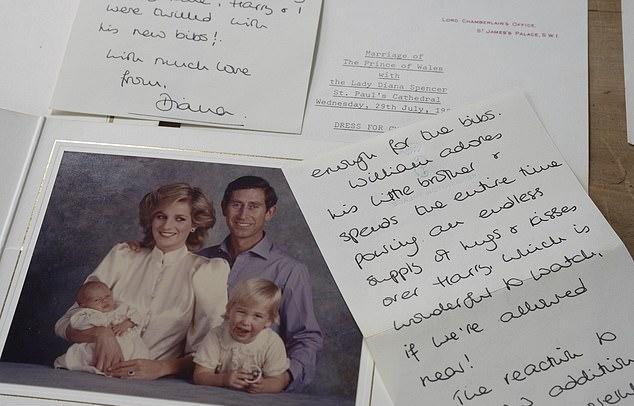 Harry & I
were thrilled with
his new bibs!.
With much love
from,
Diana.
LORD CHAMBERLAIN'S OFFICE,
ST JAMES'S PALACE, S.W.1
Marriage of
The Prince of Wales
with
the Lady Diana Spencer
St. Paul's Cathedral
Wednesday, 29th July, 19
DRESS FOR
enough for the bibs.
William adores
his little brother &
spends the entire time
pouring an endless
supply of hugs & kisses
over Harry, which is
wonderful to watch,
if we're allowed
near!
The reaction to
addition